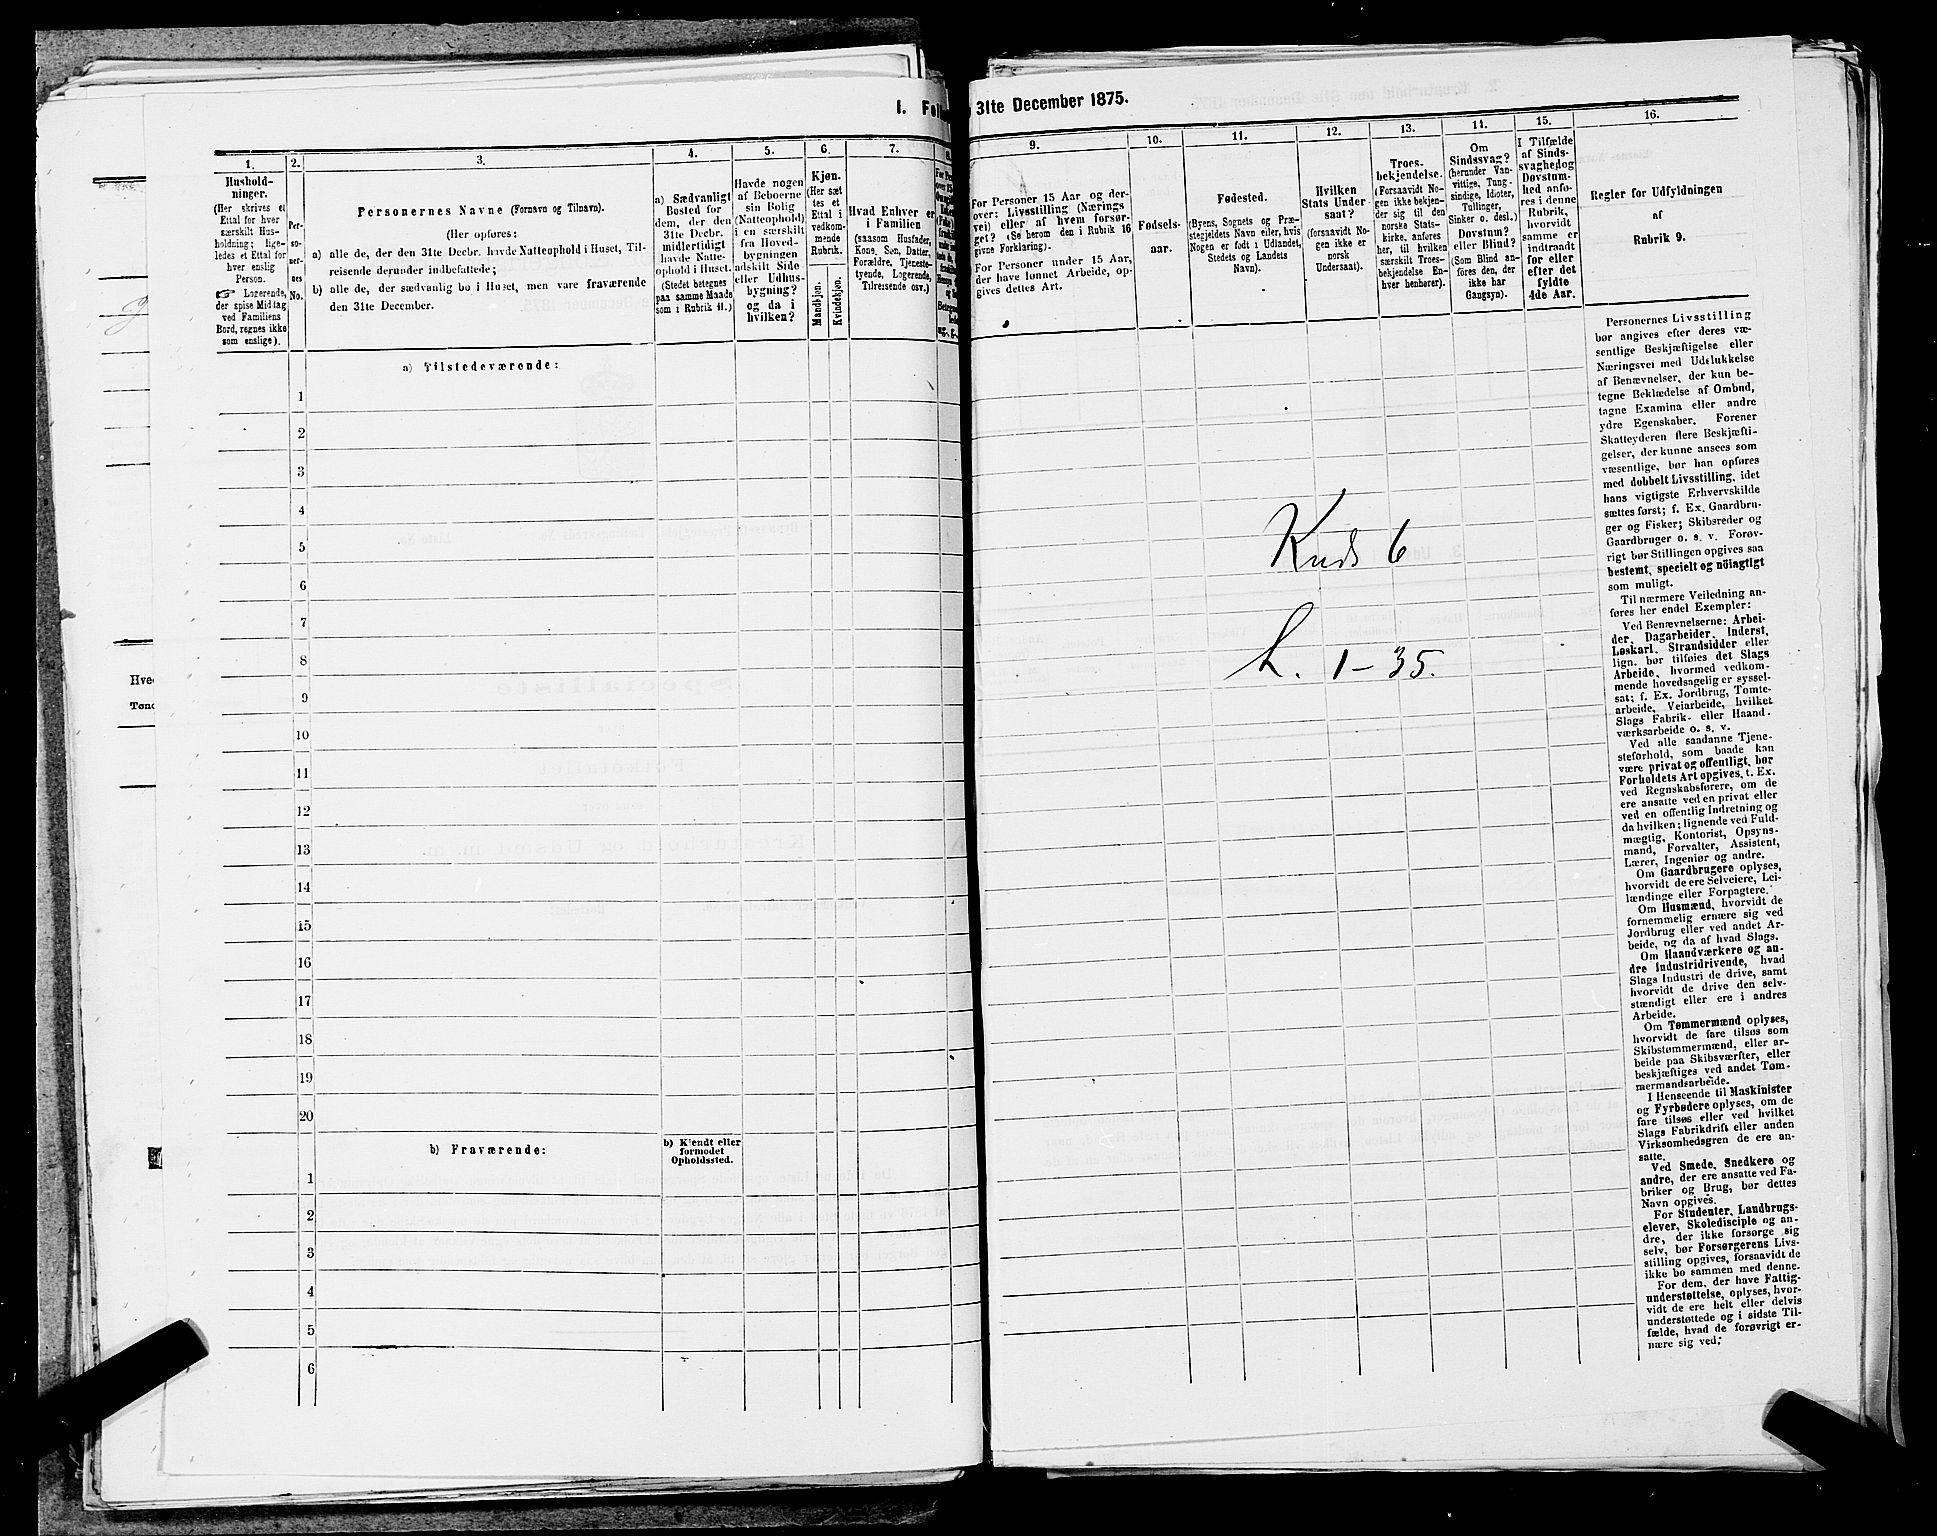 I. Fol
31te December 1875.
1.
2.
3.
4.
5.
6.
7.
8.
9.
10.
11.
12.
13.
14.
15.
16.
Hushold-
ninger.
(Her skrives et
Ettal for hver
særskilt Hus-
holdning; lige-
ledes et Ettal for
hver enslig
Person.
☞ Logerende,
der spise Midtag
ved Familiens
Bord, regnes ikke
som enslige).
Per-
so-
ner-
nes
No.
Personernes Navne (Fornavn og Tilnavn).
(Her opføres:
a) alle de, der den 31te Decbr. havde Natteophold i Huset, Til-
reisende derunder indbefattede;
b) alle de, der sædvanlig bo i Huset, men vare fraværende
den 31te December.
a) Sædvanligt
Bosted for
dem, der den
31te Decbr.
midlertidigt
havde Natte-
ophold i Huset.
(Stedet betegnes
paa samme Maade
som i Rubrik 11.)
Havde nogen
af Beboerne
sin Bolig
(Natteophold)
i en særskilt
fra Hoved-
bygningen
adskilt Side
eller Udhus-
bygning?
og da i
hvilken?
Kjøn.
(Her sæt
tes et
Ettal i
vedkom-
mende
Rubrik.
Mandkjøn.
Kvindekjøn.
Hvad Enhver er
i Familien
(saasom Husfader,
Kone, Søn, Datter,
Forældre, Tjeneste-
tyende, Logerende,
Tilreisende osv.)
For Personer 15 Aar og der-
over: Livsstilling (Nærings
vei) eller af hvem forsør-
get? (Se herom den i Rubrik 16
givne Forklaring).
For Personer under 15 Aar,
der have lønnet Arbeide, op-
gives dettes Art.
Fødsels-
aar.
Fødested.
(Byens, Sognets og Præ-
stegjeldets Navn eller, hvis
Nogen er født i Udlandet,
Stedets og Landets
Navn).
Hvilken
Stats Under
saat?
(forsaavidt No-
gen ikke er
norsk
Undersaat).
Troes-
bekjendelse.
(Forsaavidt No-
gen ikke bekjen-
der sig til den
norske Stats-
kirke, anføres
her, til hvilken
særskilt Troes-
bekjendelse En-
hver henhører).
Om
Sindssvag?
(herunder Van-
vittige, Tung-
sindige, Idioter,
Tullinger,
Sinker o. desl.)
Døvstum?
eller Blind?
(Som Blind an-
føres den, der
ikke har
Gangsyn).
I Tilfælde
af Sinds-
svaghed og
Døvstum-
hed anfø-
res i denne
Rubrik,
hvorvidt
samme er
indtraadt
før eller
efter det
fyldte
4de Aar.
Regler for Udfyldningen
af
Rubrik 9.
a) Tilstedeværende:
1
2
3
4
5
6
7
8
9
10
11
12
13
14
15
16
17
18
19
20
b) Fraværende:
b) Kjendt eller
formodet
Opholdssted.
1
2
3
4
5
6
Kreds 6
L. 1-35.
Personernes Livsstilling
bør angives efter deres væ-
sentlige Beskjæftigelse eller
Næringsvei med Udelukkelse
af Benævnelser, der kun be-
tegne Beklædelse af Ombud,
tagne Examina eller andre
ydre Egenskaber. Forener
Skatteyderen flere Beskjæfti-
gelser, der kunne ansees som
væsentlige, bør han opføres
med dobbelt Livsstilling, idet
hans vigtigste Erhvervskilde
sættes først; f. Ex. Gaardbru-
ger og Fisker; Skibsreder og
Gaardbruger o. s. v. Forøv-
rigt bør Stillingen opgives saa
bestemt, specielt og nöiagtigt
som muligt.
Til nærmere Veiledning an-
føres her endel Exempler:
Ved Benævnelserne: Arbei-
der, Dagarbeider, Inderst,
Løskarl, Strandsidder eller
lign. bør tilføies det Slags
Arbeide, hvormed vedkom-
mende hovedsagelig er syssel-
sat; f. Ex. Jordbrug, Tomte-
arbeide, Veiarbeide, hvilket
Slags Fabrik- eller Haand-
værksarbeide o. s. v.
Ved alle saadanne Tjene-
steforhold, som baade kan
være privat og offentligt, bør
Forholdets Art opgives, t. Ex.
ved Regnskabsførere, om de
ere ansatte ved en privat eller
ved en offentlig Indretning og
da hvilken; lignende ved Fuld-
mægtig, Kontorist, Opsyns-
mand, Forvalter, Assistent,
Lærer, Ingeniør og andre.
Om Gaardbrugere oplyses,
hvorvidt de ere Selveiere, Lei-
lændinge eller Forpagtere.
Om Husmænd, hvorvidt de
fornemmelig ernære sig ved
Jordbrug eller ved andet Ar-
beide, og da af hvad Slags.
Om Haandværkere og an-
dre Industridrivende, hvad
Slags Industri de drive, samt
hvorvidt de drive den selv-
stændigt eller ere i andres
Arbeide.
Om Tømmermænd oplyses,
hvorvidt de fare tilsøs som
Skibstømmermænd, eller ar-
beide paa Skibsværfter, eller
beskjæftiges ved andet Tøm-
mermandsarbeide.
I Henseende til Maskinister
og Fyrbødere oplyses, om de
fare tilsøs eller ved hvilket
Slags Fabrikdrift eller anden
Virksomhedsgren de ere an-
satte.
Ved Smede, Snedkere og
andre, der ere ansatte ved Fa-
briker og Brug, bør dettes
Navn opgives.
For Studenter, Landbrugs-
elever, Skoledisciple og an-
dre, der ikke forsørge sig
selv, bør Forsørgerens Livs-
stilling opgives, forsaavidt de
ikke bo sammen med denne.
For dem, der have Fattig-
understøttelse, oplyses, hvor-
vidt de ere helt eller delvis
understøttede og i sidste Til-
fælde, hvad de forøvrigt er-
nære sig ved.